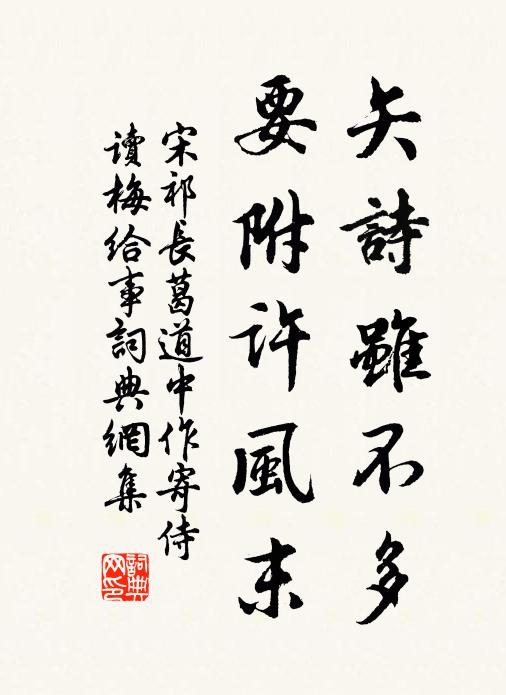 矢詩雖不多
要附許風末
宋祁長葛道中作寄侍
讀梅給事詞典網集
詞典
网印